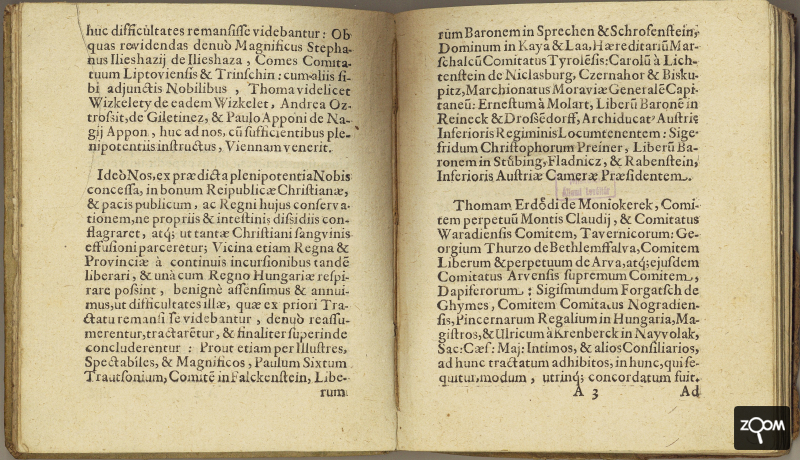 huc difficultates remansisse videbantur: Ob
quas rovidendas denuò Magnificus Stepha-
nus Ilieshazij de Ilieshaza, Comes Comita-
tuum Liptoviensis & Trinschin: cum aliis si-
bi adjunctis Nobilibus, Thoma videlicet
Wizkelety de eadem Wizkelet, Andrea Oz-
trossit, de Giletinez, & Paulo Apponi de Na-
gij Appon, huc ad nos, cū sufficientibus ple-
nipotentiis instructus, Viennam venerit.
Ideò Nos, ex prædicta plenipotentia Nobis
concessa, in bonum Reipublicæ Christianæ,
& pacis publicum, ac Regni hujus conserva-
tionem, ne propriis & intestinis dissidiis con-
flagraret, atq; ut tantæ Christiani sangvinis
effusioni parceretur; Vicina etiam Regna &
Provinciæ à continuis incursionibus tandē
liberari, & unà cum Regno Hungariæ respi-
rare possint, benignè assensimus & annui-
mus, ut difficultates illæ, quæ ex priori Tra-
ctatu remansisse videbantur, denuò reassu-
merentur, tractarētur, & finaliter superinde
concluderentur: Prout etiam per Illustres,
Spectabiles, & Magnificos, Paulum Sixtum
Trautsonium, Comitē in Falckenstein, Libe-
rum
rūm Baronem in Sprechen & Schrofenstein,
Dominum in Kaya & Laa, Hæreditariū Mar-
schalcū Comitatus Tyrolēsis: Carolū à Lich-
tenstein de Niclasburg, Czernahor & Bisku-
pitz, Marchionatus Moraviæ Generalē Capi-
taneū: Ernestum à Molart, Liberū Baronē in
Reineck & Drossēdorff, Archiducat9 Austriæ
Inferioris Regiminis Locumtenentem: Sige-
fridum Christophorum Preiner, Liberū Ba-
ronem in Stübing, Fladnicz, & Rabenstein,
Inferioris Austriæ Cameræ Præsidentem.
Thomam Erdődi de Moniokerek, Comi-
tem perpetuū Montis Claudij, & Comitatus
Waradiensis Comitem, Tavernicorum: Ge-
orgium Thurzo de Bethlemssalva, Comitem
Liberum & perpetuum de Arva, atq; ejusdem
Comitatus Arvensis supremum Comitem,
Dapiferorum: Sigismundum Forgatsch de
Ghymes, Comitem Comitatus Nogradien-
sis, Pincernarum Regalium in Hungaria, Ma-
gistros, & Ulricum à Krenberck in Nayvolak,
Sac: Cæs: Maj: Intimos, & alios Consiliarios,
ad hunc tractatum adhibitos, in hunc, qui se-
quitur, modum, utrinq; concordatum fuit.
A 3 Ad
ZOOM